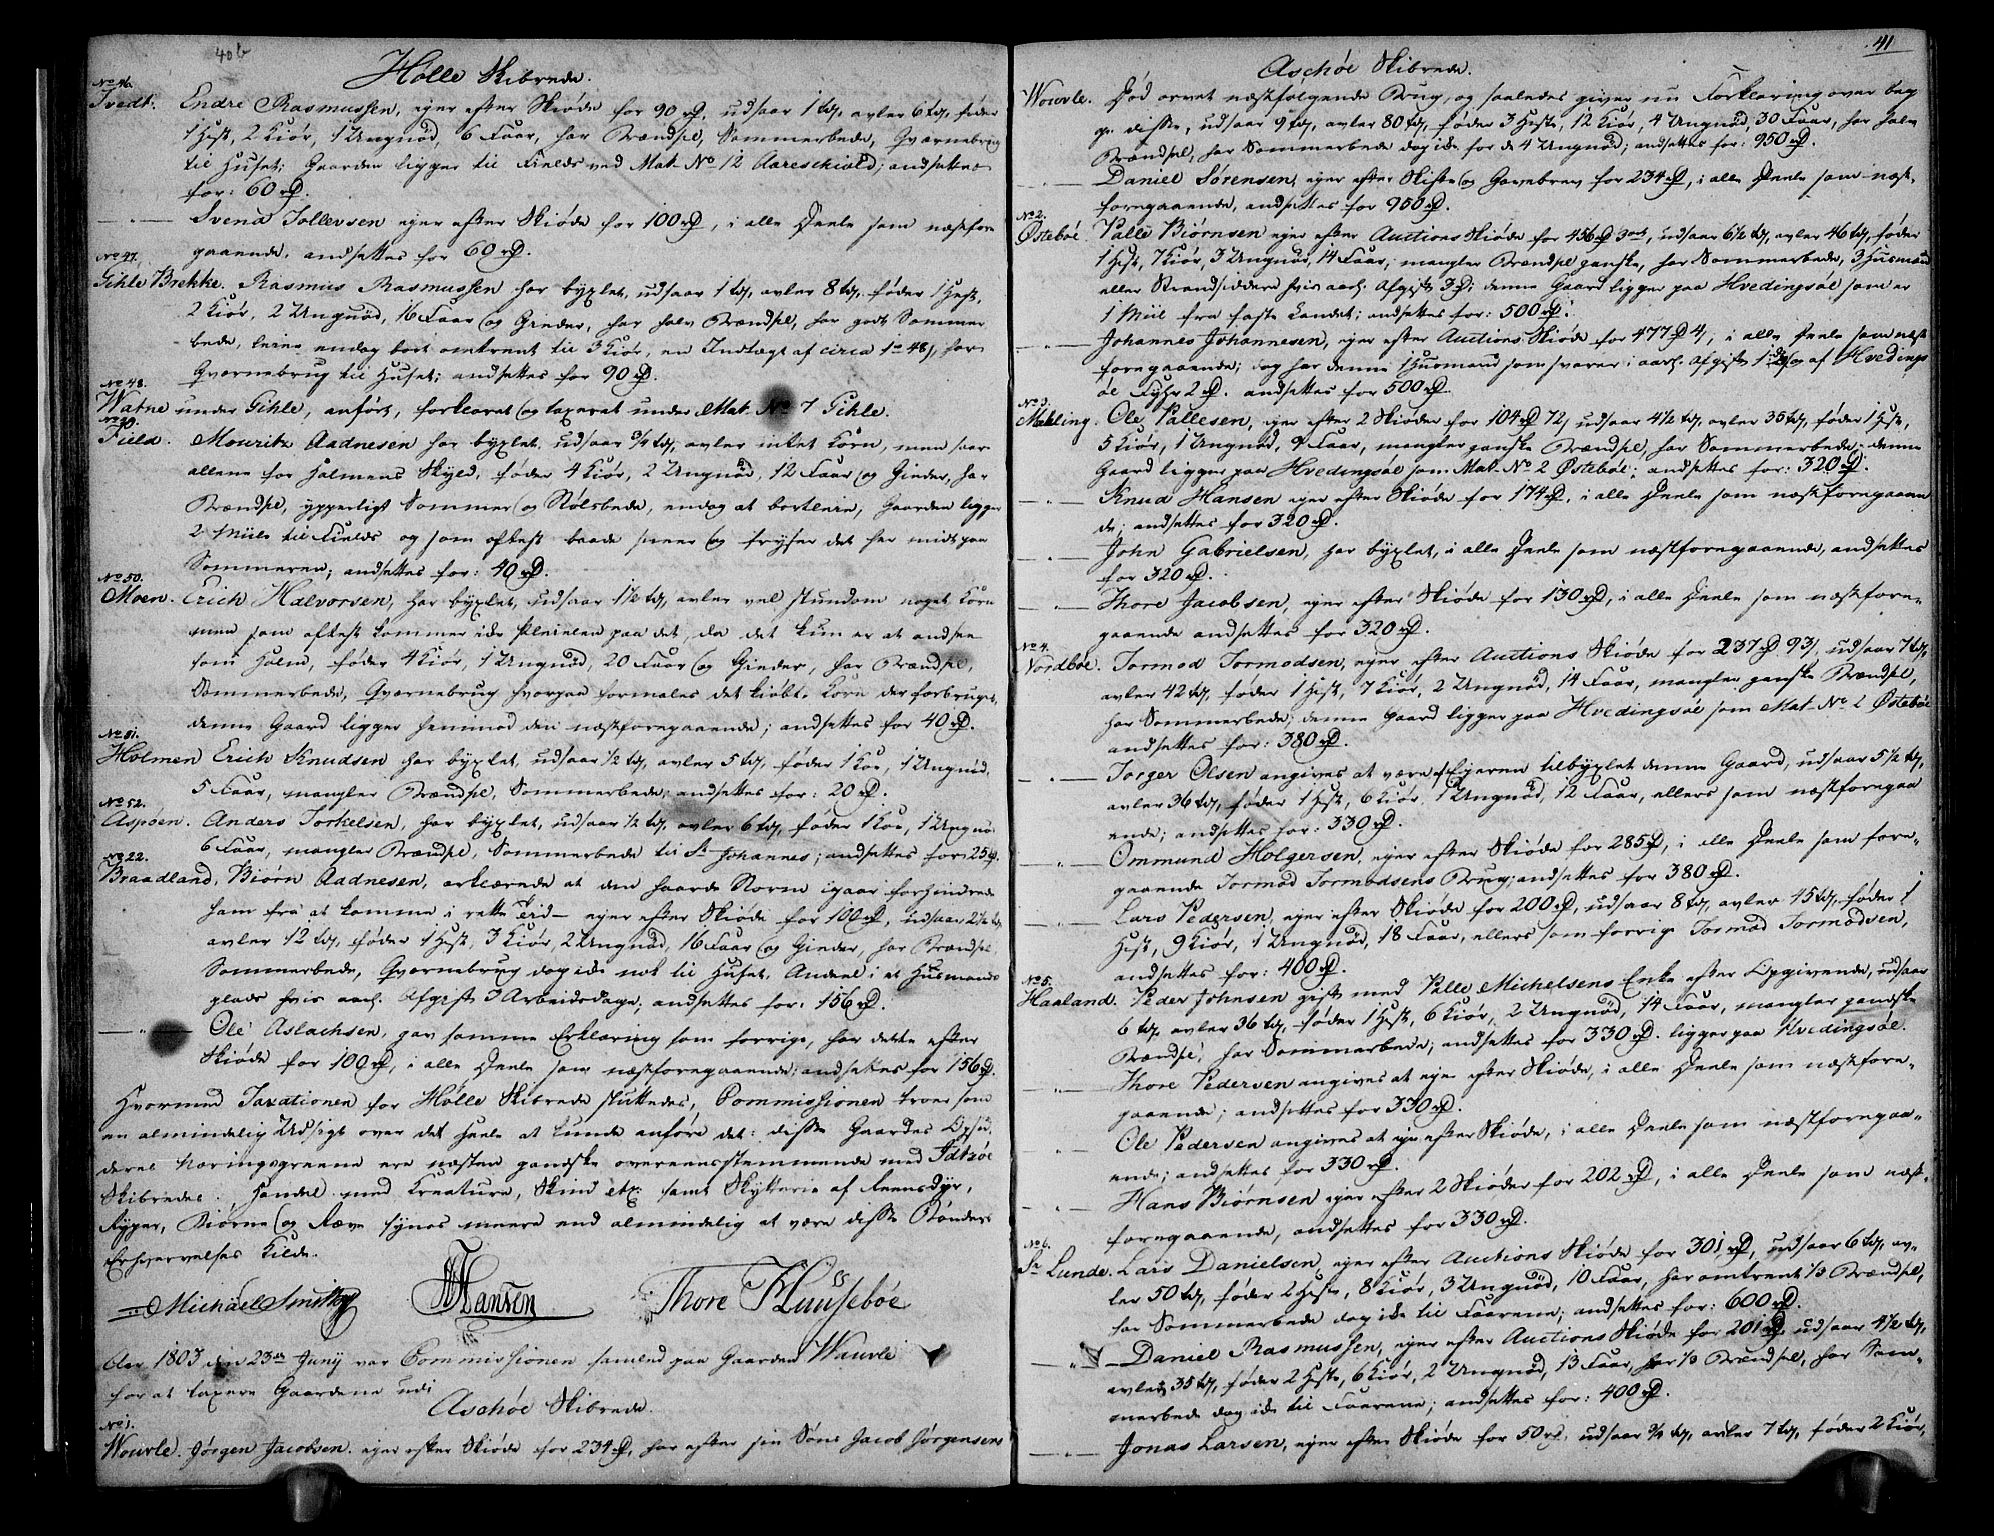 40b
Hølle Skibrede.
No 46.
Tvedt. Endre Rasmussen, ejer efter Skiøde for 90 rd, udsaar 1 td, avler 6 td, føder
1 Hest, 2 Kiør, 1 Ungnød, 6 Faar, har Brændsel, Sommerbede, Qværnebrug
til Huset; Gaarden ligger til Fields ved Mat. No 12 Aareskiold; andsættes
for: 60 rd.
— " — Svend Tollevsen ejer efter Skiøde for 100 rd, i alle Deele som næstfore
gaaende, andsættes for 60 rd.
No 47.
Gihle Brekke. Rasmus Rasmussen har byxlet, udsaar 1 td, avler 8 td, føder 1 Hest,
2 Kiør, 2 Ungnød, 16 Faar og Gieder, har halv Brændsel, har godt Sommer
bede, leier endog bort omtrent til 3 Kiør, en Indtægt af circa 1 rd 48 s, har
Qværnebrug til Huset; andsættes for 90 rd.
No 48.
Watne under Gihle, anført, forklaret og taxeret under Mat. No 7 Gihle.
No 49.
Field. Mouritz Aadnesen har byxlet, udsaar 3/4 td, avler intet Korn, men saar
allene for Halmens Skyld, føder 4 Kiør, 2 Ungnød, 12 Faar og Gieder, har
Brændsel, ypperligt Sommer og Stølsbede, endog at bortleie, Gaarden ligger
2 Miile til Fields og som oftest baade sneer og fryser det her midt paa
Sommeren; andsættes for: 40 rd.
No 50.
Moen. Erich Halvorsen, har byxlet, udsaar 1 1/2 td, avler vel stundom noget Korn
men som oftest kommer ide Pleielen paa det, da det kun er at andsee
som Halm, føder 4 Kiør, 1 Ungnød, 20 Faar og Gieder, har Brændsel,
Sommerbede, Qværnebrug hvorpaa formales det kiøbte Korn der forbruges,
denne Gaard ligger henimod den næstforegaaende; andsættes for 40 rd.
No 51.
Holmen Erich Knudsen har byxlet, udsaar 1/2 td, avler 5 td, føder 1 Koe, 1 Ungnød,
5 Faar, mangler Brændsel, Sommerbede; andsættes for: 20 rd.
No 52.
Aspøen. Anders Torkelsen, har byxlet, udsaar 1/2 td, avler 6 td, føder 1 Koe, 1 Ungnø
6 Faar, mangler Brændsel, Sommerbede til St Johannes; andsættes for: 25 rd.
No 22.
Braadland, Biørn Aadnesen, erklærede at den haarde Storm igaar forhindrede
ham fra at komme i rette Tid — ejer efter Skiøde for 100 rd, udsaar 2 1/2 td,
avler 12 td, føder 1 Hest, 3 Kiør, 2 Ungnød, 16 Faar og Gieder, har Brændsel,
Sommerbede, Qværnebrug dog ide nok til Huset, Andeel i et Husmands
plads hvis aarl. Afgift 3 Arbeidsdage, andsættes for: 156 rd.
— " — Ole Aslachsen, gav samme Erklæring som forrige, har dette efter
Skiøde for 100 rd, i alle Deele som næstforegaaende; andsættes for 156 rd.
Hvormed Taxationen for Hølle Skibrede sluttedes, Commissionen troer som
en almindelig Udsigt over det heele at kunde anføre det: disse Gaardes Opsid
deres Næringsgreene ere næsten gandske overeensstemmende med Idtzøe
Skibredes. Handel med Kreature, Skind etc samt Skytterie af Reensdyr,
Ryper, Biørne og Ræve synes meere end almindelig at være disse Bønders
Erhvervelses Kilde.
Michäel Smith Hansen Thore T Huusebøe
Aar 1803 den 23de Junij var Commissionen samled paa Gaarden Wourle
for at taxere Gaardene udi
Aschøe Skibrede.
No 1.
Wourle. Jørgen Jacobsen. ejer efter Skiøde for 234 rd, har efter sin Søns Jacob Jørgensens
41
Aschøe Skibrede.
Wourle. Død arvet næstfølgende Brug, og saaledes giver nu Forklaring over beg
ge disse, udsaar 9 td, avler 80 td, føder 3 Heste, 12 Kiør, 4 Ungnød, 30 Faar, har halv
Brændsel, har Sommerbede dog ide for de 4 Ungnød; andsættes for: 950 rd.
— " — Daniel Sørensen, ejer efter Skifte og Gavebrev for 234 rd, i alle Deele som næst-
foregaaende, andsættes for 950 rd.
No 2.
Østebøe. Palle Biørnsen ejer efter Auctions Skiøde for 456 rd 3 ort, udsaar 6 1/2 td, avler 46 td, føder
1 Hest, 7 Kiør, 3 Ungnød, 14 Faar, mangler Brændsel ganske, har Sommerbede, 3 Husmænd
eller Strandsiddere hvis aarl. Afgift 3 rd; denne Gaard ligger paa Hvedingsøe som er
1 Miil fra faste Landet; andsættes for: 500 rd.
— " — Johannes Johannesen, ejer efter Auctions Skiøde for 477 rd 4 s, i alle Deele som næst
foregaaende; dog har denne 1 Husmand som svarer i aarl. Afgift 1 rd, og af Hvedings
øe Fyhr 2 rd. andsættes for 500 rd.
No 3.
Mækling. Ole Pallesen, ejer efter 2 Skiøder for 104 rd 72 s, udsaar 4 1/2 td, avler 35 td, føder 1 Hest,
5 Kiør, 1 Ungnød, 9 Faar, mangler ganske Brændsel, har Sommerbede, denne
Gaard ligger paa Hvedingsøe som Mat. No 2 Østebøe; andsættes for: 320 rd.
— " — Knud Hansen ejer efter Skiøde for 174 rd, i alle Deele som næstforegaaen
de; andsættes for 320 rd.
— " — John Gabrielsen, har byxlet, i alle Deele som næstforegaaende, andsættes
for 320 rd.
— " — Thore Jacobsen, ejer efter Skiøde for 130 rd, i alle Deele som næstfore-
gaaende andsættes for 320 rd.
No 4.
Nordbøe. Tormod Tormodsen, ejer efter Auctions Skiøde for 237 rd 93 s, udsaar 7 td,
avler 42 td, føder 1 Hest, 7 Kiør, 2 Ungnød, 14 Faar, mangler ganske Brændsel,
har Sommerbede; denne Gaard ligger paa Hvedingsøe som Mat. No 2 Østebøe
andsættes for: 380 rd.
— " — Torger Olsen angives at være af Ejeren tilbyxlet denne Gaard, udsaar 5 1/2 td,
avler 36 td, føder 1 Hest, 6 Kiør, 1 Ungnød, 12 Faar, ellers som næstforegaa
ende; andsættes for: 330 rd.
— " — Ommund Holgersen, ejer efter Skiøde for 285 rd, i alle Deele som fore-
gaaende Tormod Tormodsens Brug; andsættes for 380 rd.
— " — Lars Pedersen, ejer efter Skiøde for 200 rd, udsaar 8 td, avler 45 td, føder 1
Hest, 9 Kiør, 1 Ungnød, 18 Faar, ellers som forrige Tormod Tormodsen,
andsættes for: 400 rd.
No 5.
Haaland. Peder Johnsen gift med Palle Michelsens Enke efter Opgivende, udsaar
6 td, avler 36 td, føder 1 Hest, 6 Kiør, 2 Ungnød, 14 Faar, mangler gandske
Brændsel, har Sommerbede; andsættes for 330 rd. ligger paa Hvedingsøe.
— " — Thore Pedersen angives at eje efter Skiøde, i alle Deele som næstfore-
gaaende; andsættes for 330 rd.
— " — Ole Pedersen angives at eje efter Skiøde, i alle Deele som næstforegaa-
ende; andsættes for 330 rd.
— " — Hans Biørnsen ejer efter 2 Skiøder for 202 rd, i alle Deele som næst-
foregaaende, andsættes for 330 rd.
No 6.
St Lunde. Lars Danielsen, ejer efter Auctions Skiøde for 301 rd, udsaar 6 td, av-
ler 50 td, føder 2 Heste, 8 Kiør, 3 Ungnød, 10 Faar, har omtrent 1/3 Brændsel,
har Sommerbede dog ide til Faarene; andsættes for: 600 rd.
— " — Daniel Rasmussen, ejer efter Auctions Skiøde for 201 rd, udsaar 4 1/2 td,
avler 35 td, føder 2 Heste, 6 Kiør, 2 Ungnød, 13 Faar, har 1/3 Brændsel, har Som-
merbede dog ide til Faarene; andsættes for: 400 rd.
— " — Jonas Larsen, ejer efter Skiøde for 50 rd, udsaar 3/4 td, avler 7 td, føder 2 Kiør,